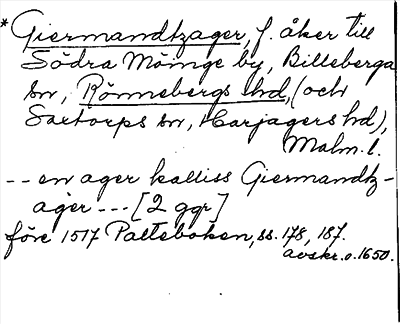 * Giermandtzager, f. åker till
Södra Möinge by, Billeberga
sn, Rönnebergs hd, (och
Saxtorps sn, Harjagers hd),
Malm. l.
-- en ager kalliss Giermandtz-
ager --- [2 ggr]
före 1517 Palteboken, ss. 178, 187.
avskr. o. 1650.